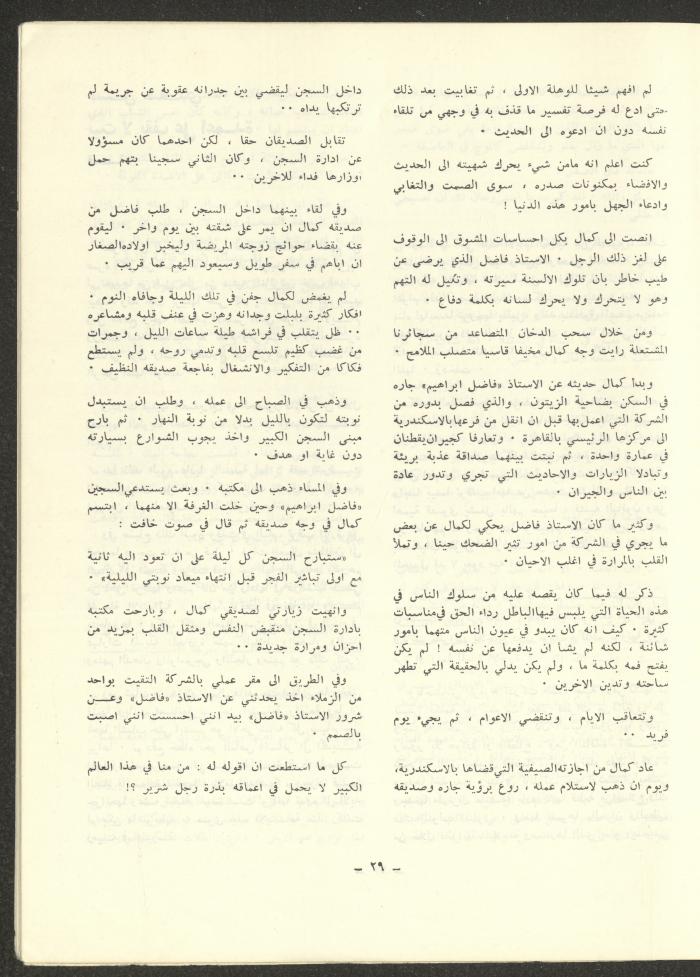 لم افهم شيئا للوهلة الاولى ، ثم تغابيت بعد ذلك
حتى ادع له فرصة تفسير ما قذف به في وجهي من تلقاء
نفسه دون ان ادعوه الى الحديث ٠
كنت اعلم انه مامن شيء يحرك شهيته الى الحديث
والافضاء بمكنونات صدره ، سوى الصمت والتغابي
وادعاء الجهل بامور هذه الدنيا !
انصت الى كمال بكل احساسات المشوق الى الوقوف
على لغز ذلك الرجل ٠ الاستاذ فاضل الذي يرضى عن
طيب خاطر بان تلوك الالسنة سيرته ، وتكيل له التهم
وهو لا يتحرك ولا يحرك لسانه بكلمة دفاع ٠
ومن خلال سحب الدخان المتصاعد من سجائرنا
المشتعلة رايت وجه كمال مخيفا قاسيا متصلب الملامح ٠
وبدأ كمال حديثه عن الاستاذ «فاضل ابراهيم» جاره
في السكن بضاحية الزيتون ، والذي فصل بدوره من
الشركة التي اعمل بها قبل ان انقل من فرعها بالاسكندرية
الى مركزها الرئيسي بالقاهرة ٠ وتعارفا كجيران يقطنان
في عمارة واحدة ، ثم نبتت بينهما صداقة عذبة بريئة
وتبادلا الزيارات والاحاديث التي تجري وتدور عادة
بين الناس والجيران ٠
وكثير ما كان الاستاذ فاضل يحكي لكمال عن بعض
ما يجري في الشركة من امور تثير الضحك حينا ، وتملأ
القلب بالمرارة في اغلب الاحيان ٠
ذكر له فيما كان يقصه عليه من سلوك الناس في
هذه الحياة التي يلبس فيها الباطل رداء الحق في مناسبات
كثيرة ٠ كيف انه كان يبدو في عيون الناس متهما بامور
شائنة ، لكنه لم يشأ ان يدفعها عن نفسه ! لم يكن
يفتح فمه بكلمة ما ، ولم يكن يدلي بالحقيقة التي تطهر
ساحته وتدين الاخرين ٠
وتتعاقب الايام ، وتنقضي الاعوام ، ثم يجيء يوم
فريد ٠٠
عاد كمال من اجازته الصيفية التي قضاها بالاسكندرية،
ويوم ان ذهب لاستلام عمله ، روع برؤية جاره وصديقه
داخل السجن ليقضي بين جدرانه عقوبة عن جريمة لم
ترتكبها يداه ٠٠
تقابل الصديقان حقا ، لكن احدهما كان مسؤولا
عن ادارة السجن ، وكان الثاني سجينا يتهم حمل
اوزارها فداء للاخرين ٠٠
وفي لقاء بينهما داخل السجن ، طلب فاضل من
صديقه كمال ان يمر على شقته بين يوم واخر ٠ ليقوم
عنه بقضاء حوائج زوجته المريضة وليخبر اولاده الصغار
ان اباهم في سفر طويل وسيعود اليهم عما قريب ٠
لم يغمض لكمال جفن في تلك الليلة وجافاه النوم ٠
افكار كثيرة بلبلت وجدانه وهزت في عنف قلبه ومشاعره
٠٠ ظل يتقلب في فراشه طيلة ساعات الليل ، وجمرات
من غضب كظيم تلسع قلبه وتدمي روحه ، ولم يستطع
فكاكا من التفكير والانشغال بفاجعة صديقه النظيف ٠
وذهب في الصباح الى عمله ، وطلب ان يستبدل
نوبته لتكون بالليل بدلا من نوبة النهار ٠ ثم بارح
مبنى السجن الكبير واخذ يجوب الشوارع بسيارته
دون غاية او هدف ٠
وفي المساء ذهب الى مكتبه ٠ وبعث يستدعي السجين
«فاضل ابراهيم» وحين خلت الغرفة الا منهما ، ابتسم
كمال في وجه صديقه ثم قال في صوت خافت :
«ستبارح السجن كل ليلة على ان تعود اليه ثانية
مع اولى تباشير الفجر قبل انتهاء ميعاد نوبتي الليلية» ٠
وانهيت زيارتي لصديقي كمال ، وبارحت مكتبه
بادارة السجن منقبض النفس ومثقل القلب بمزيد من
احزان ومرارة جديدة ٠٠
وفي الطريق الى مقر عملي بالشركة التقيت بواحد
من الزملاء اخذ يحدثني عن الاستاذ «فاضل» وعــن
شرور الاستاذ «فاضل» بيد انني احسست انني اصبت
بالصمم ٠
كل ما استطعت ان اقوله له : من منا في هذا العالم
الكبير لا يحمل في اعماقه بذرة رجل شرير ؟!
– ٢٩ –